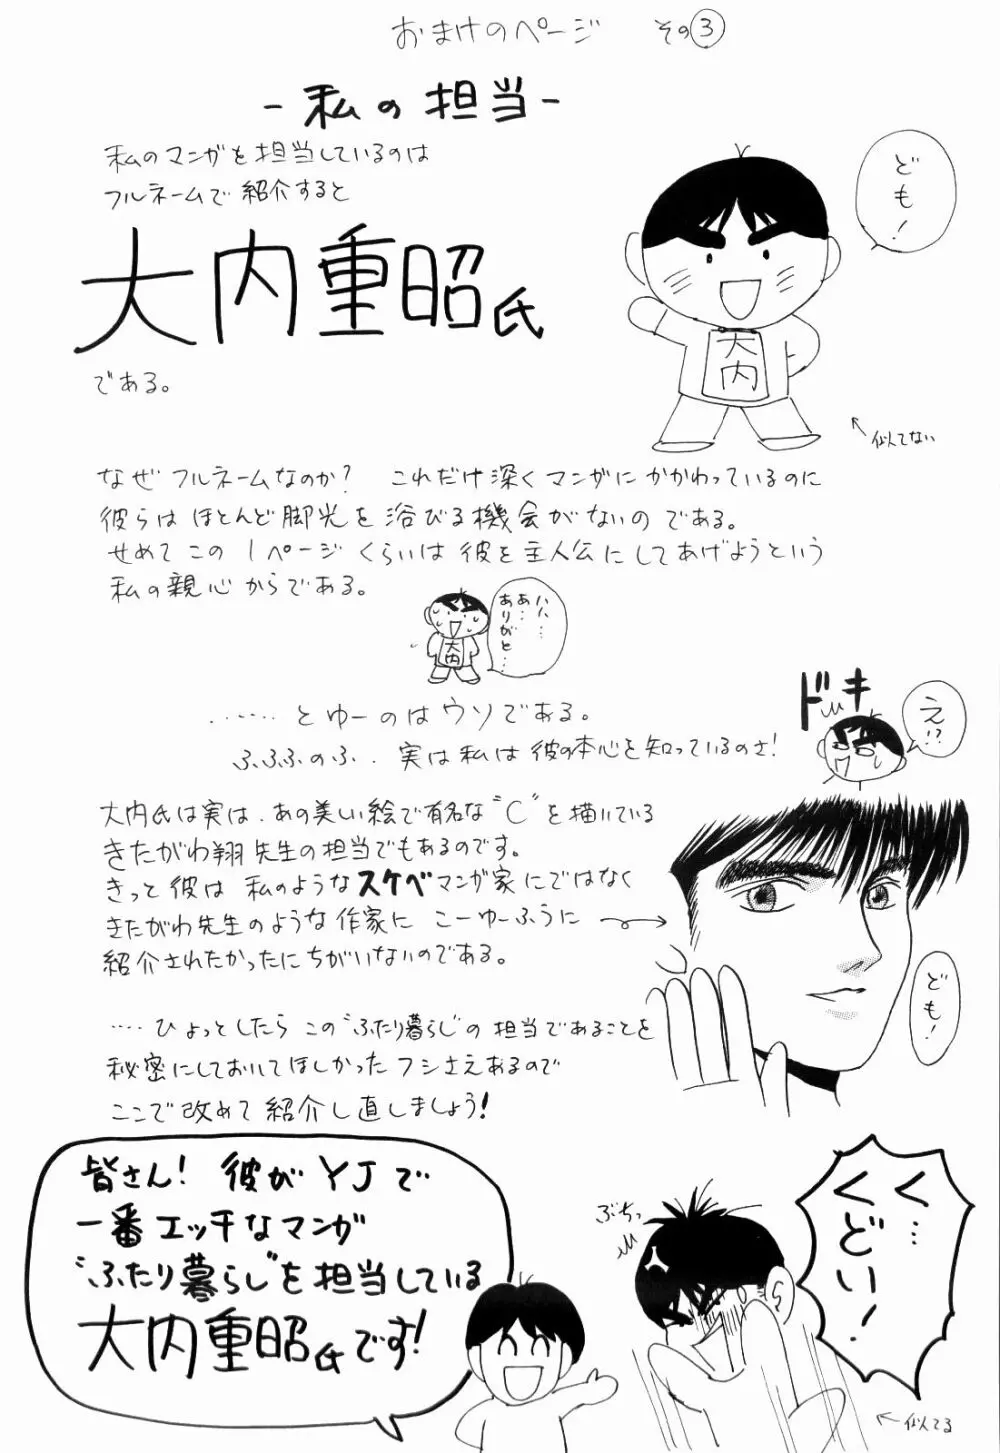 おまけのページ その③
-私の担当-
私のマンガを担当しているのは
フルネームで紹介すると
大内重昭氏
である。
ども!
大内
↖似てない
なぜフルネームなのか? これだけ深くマンガにかかわっているのに
彼らはほとんど脚光を浴びる機会がないのである。
せめてこの1ページくらいは彼を主人公にしてあげようという
私の親心からである。
ハハ…
あ…
ありがと…
大内
……とゆーのはウソである。
ふふふのふ. 実は私は彼の本心を知っているのさ!
ドキ
え!?
大内氏は実は、あの美しい絵で有名な“C”を描いている
きたがわ翔先生の担当でもあるのです。
きっと彼は私のようなスケベマンガ家にではなく
きたがわ先生のような作家にこーゆーふうに
紹介されたかったにちがいないのである。
ども!
‥‥ひょっとしたらこの“ふたり暮らし”の担当であることを
秘密にしておいてほしかったフシさえあるので
ここで改めて紹介し直しましょう!
皆さん! 彼がYJで
一番エッチなマンガ
“ふたり暮らし”を担当している
大内重昭氏です!
ぶちっ
く…
くどい!
←似てる